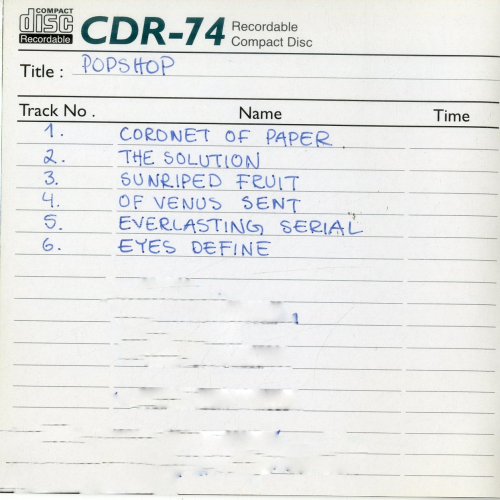 COMPACT
disc
Recordable
CDR-74 Recordable
Compact Disc
Title : POPSHOP
Track No . Name Time
1. CORONET OF PAPER
2. THE SOLUTION
3. SUNRIPED FRUIT
4. OF VENUS SENT
5. EVERLASTING SERIAL
6. EYES DEFINE